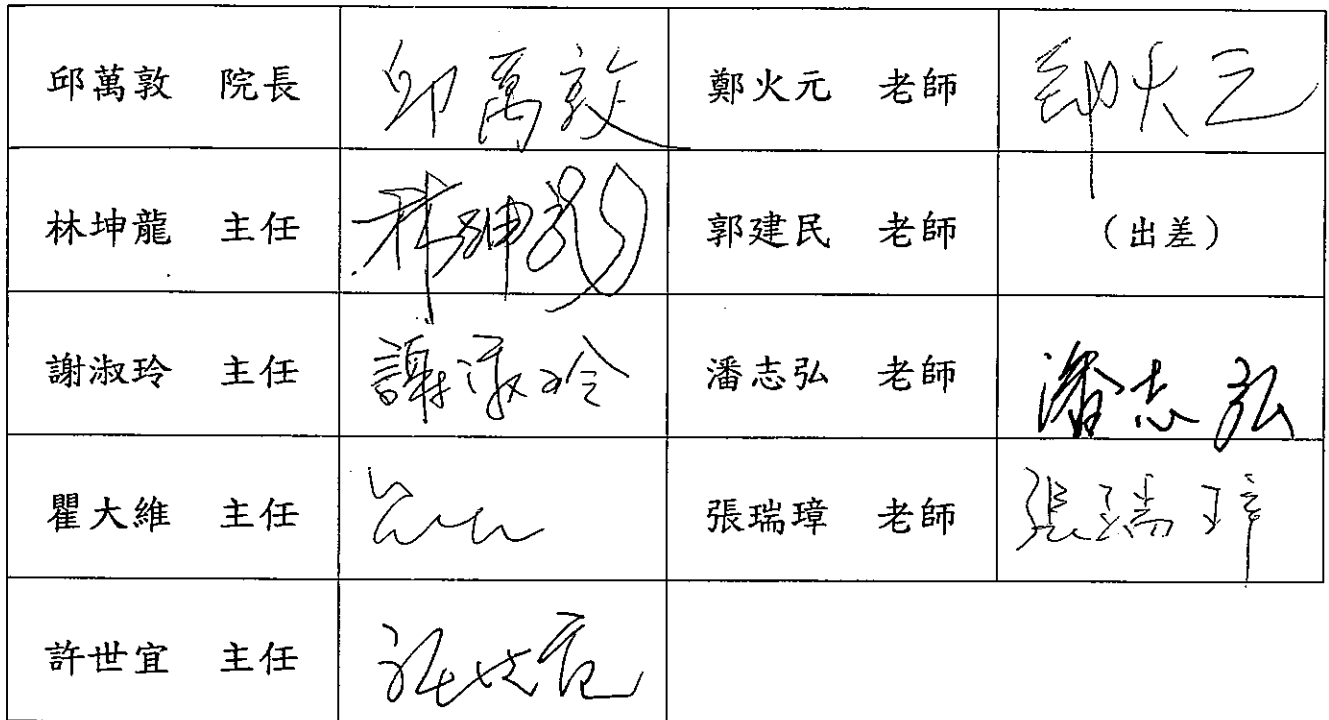 邱萬敦 院長 邱萬敦 鄭火元 老師 鄭火元
林坤龍 主任 林坤龍 郭建民 老師 (出差)
謝淑玲 主任 謝淑玲 潘志弘 老師 潘志弘
瞿大維 主任 張瑞璋 老師 張瑞璋
許世宜 主任 許世宜